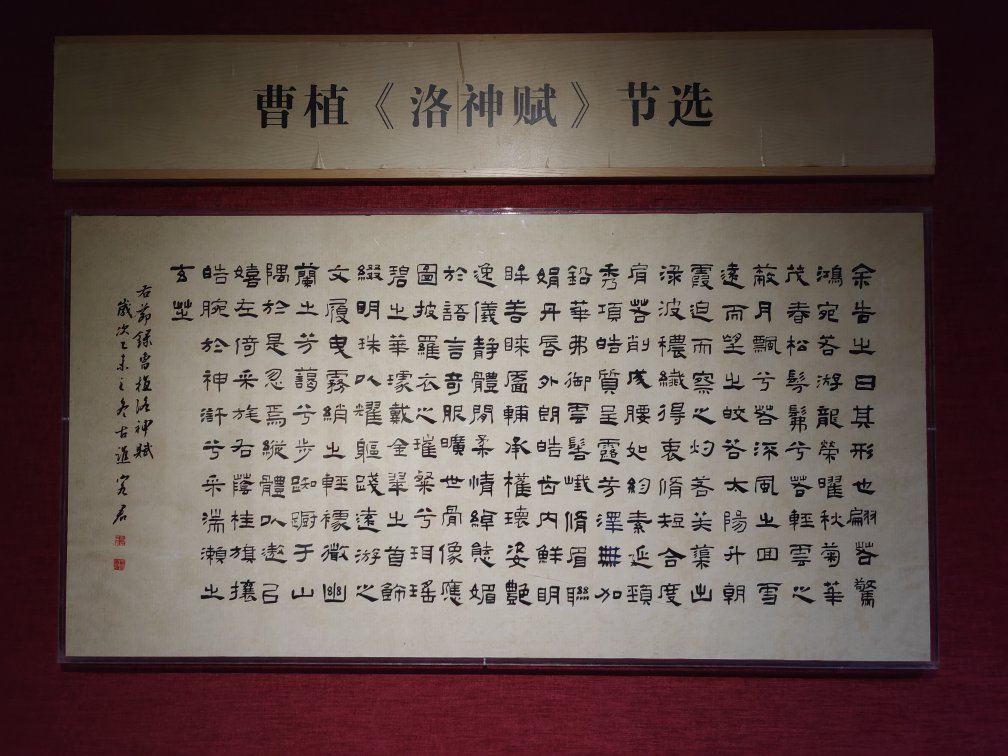 曹植《洛神赋》节选
余告之曰其形也翩若驚
鴻宛若游龍榮曜秋菊華
茂春松髣髴兮若輕雲之
蔽月飄兮若流風之回雪
遠而望之皎若太陽升朝
霞迫而察之灼若芙蕖出
淥波穠纖得衷脩短合度
肩若削成腰如約素延頸
秀項皓質呈露芳澤無加
鉛華弗御雲髻峨脩眉聯
娟丹唇外朗皓齒內鮮明
眸善睞靨輔承權瓌姿艷
逸儀靜體閑柔情綽態媚
於語言奇服曠世骨像應
圖披羅衣之璀粲兮珥瑤
碧之華琚戴金翠之首飾
綴明珠以耀軀踐遠游之
文履曳霧綃之輕裾微幽
蘭之芳藹兮步踟躕于山
隅於是忽焉縱體以遨以
嬉左倚采旄右蔭桂旗攘
皓腕於神滸兮采湍瀨之
玄芝
右節錄曹植洛神賦
歲次乙未之冬古